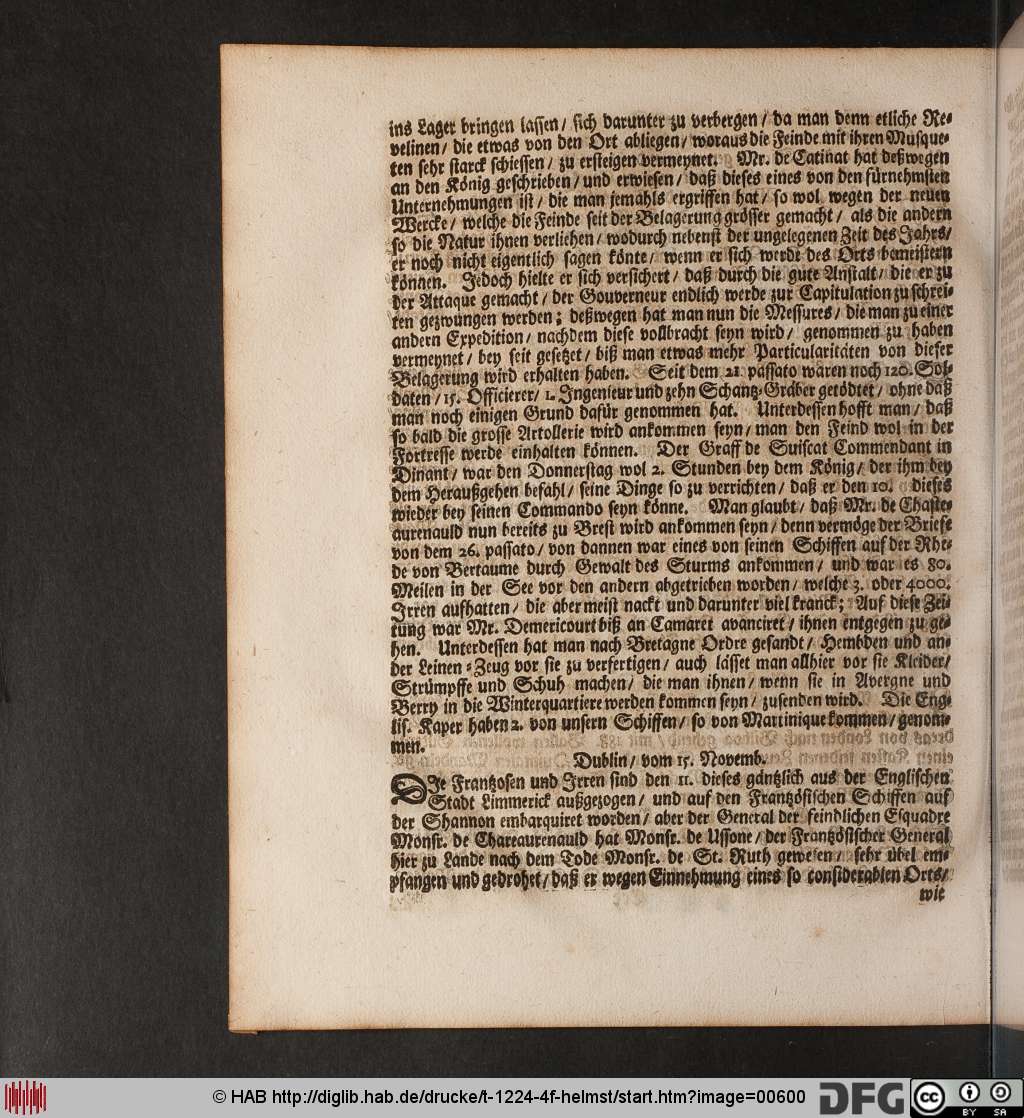 ins Lager bringen lassen / sich darunter zu verbergen / da man denn etliche Re-
velinen / die etwas von den Ort abliegen / woraus die Feinde mit ihren Musque-
ten sehr starck schiessen / zu ersteigen vermeynet. Mr. de Catinat hat deßwegen
an den König geschrieben / und erwiesen / daß dieses eines von den fürnehmsten
Unternehmungen ist / die man jemahls ergriffen hat / so wol wegen der neuen
Wercke / welche die Feinde seit der Belagerung grösser gemacht / als die andern
so die Natur ihnen verliehen / wodurch nebenst der ungelegenen Zeit des Jahrs /
er noch nicht eigentlich sagen könte / wenn er sich werde des Orts bemeistern
können. Jedoch hielte er sich versichert / daß durch die gute Anstalt / die er zu
der Attaque gemacht / der Gouverneur endlich werde zur Capitulation zu schrei-
ten gezwungen werden; deßwegen hat man nun die Messures / die man zu einer
andern Expedition / nachdem diese vollbracht seyn wird / genommen zu haben
vermeynet / bey seit gesetzet / biß man etwas mehr Particularitäten von dieser
Belagerung wird erhalten haben. Seit dem 21 passato wären noch 120. Sol-
daten / 15. Officierer / 1. Ingenieur und zehn Schantz-Gräber getödtet / ohne daß
man noch einigen Grund dafür genommen hat. Unterdessen hofft man / daß
so bald die grosse Artollerie wird ankommen seyn / man den Feind wol in der
Fortresse werde einhalten können. Der Graff de Suiscat Commendant in
Dinant / war den Donnerstag wol 2. Stunden bey dem König / der ihm bey
dem Heraußgehen befahl / seine Dinge so zu verrichten / daß er den 10. dieses
wieder bey seinen Commando seyn könne. Man glaubt / daß Mr. de Chaste-
aurenauld nun bereits zu Brest wird ankommen seyn / denn vermöge der Briefe
von dem 26. passato / von dannen war eines von seinen Schiffen auf der Rhe-
de von Bertaume durch Gewalt des Sturms ankommen / und war es 80.
Meilen in der See vor den andern abgetrieben worden / welche 3. oder 4000.
Irren aufhatten / die aber meist nackt und darunter viel kranck; Auf diese Zei-
tung war Mr. Demericourt biß an Camaret avanciret / ihnen entgegen zu ge-
hen. Unterdessen hat man nach Bretagne Ordre gesandt / Hembden und an-
der Leinen-Zeug vor sie zu verfertigen / auch lässet man allhier vor sie Kleider /
Strümpffe und Schuh machen / die man ihnen / wenn sie in Avergne und
Berry in die Winterquartiere werden kommen seyn / zusenden wird. Die Eng-
lis. Kaper haben 2. von unsern Schiffen / so von Martinique kommen / genom-
men.
Dublin / vom 15. Novemb.
DIe Frantzosen und Irren sind den 11. dieses gäntzlich aus der Englischen
Stadt Limmerick außgezogen / und auf den Frantzösischen Schiffen auf
der Shannon embarquiret worden / aber der General der feindlichen Esquadre
Monsr. de Chareaurenauld hat Monsr. de Ussone / der Frantzösischer General
hier zu Lande nach dem Tode Monsr. de St. Ruth gewesen / sehr übel em-
pfangen und gedrohet / daß er wegen Einnehmung eines so considerablen Orts /
wie
© HAB http://diglib.hab.de/drucke/t-1224-4f-helmst/start.htm?image=00600
DFG
cc
BY SA